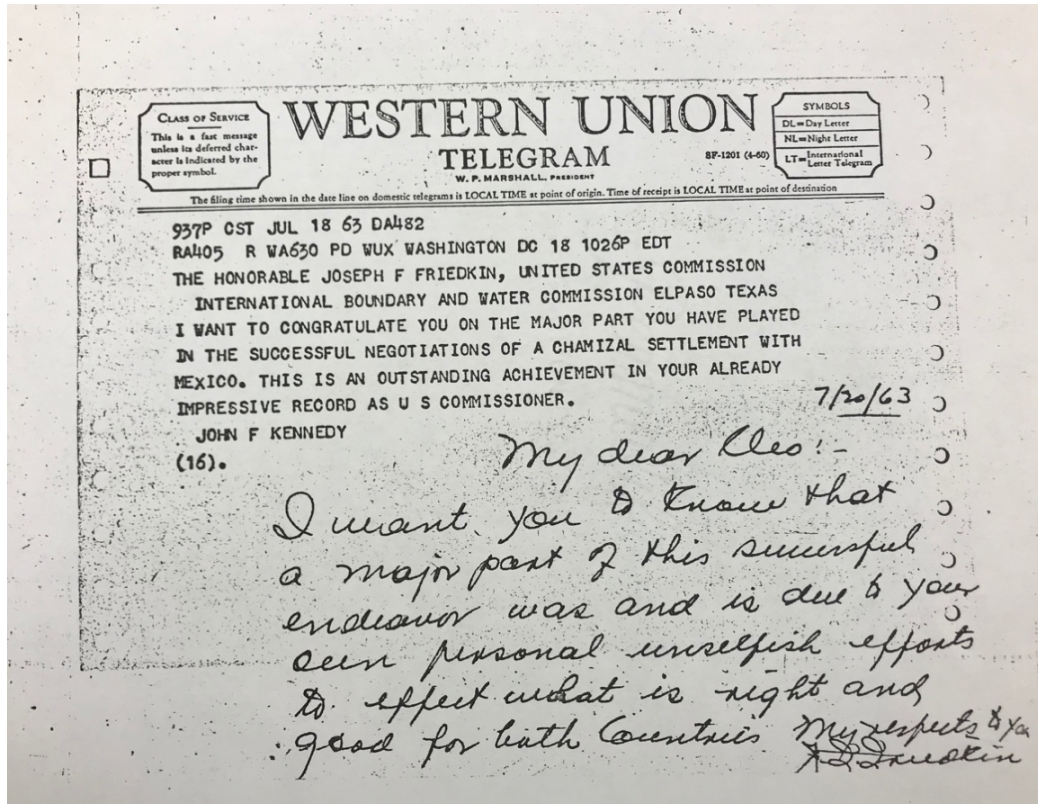 CLASS OF SERVICE
This is a fast message
unless its deferred char-
acter is indicated by the
proper symbol.
WESTERN UNION
TELEGRAM
W. P. MARSHALL, PRESIDENT
SF-1201 (4-60)
SYMBOLS
DL=Day Letter
NL=Night Letter
LT=International
Letter Telegram
The filing time shown in the date line on domestic telegrams is LOCAL TIME at point of origin. Time of receipt is LOCAL TIME at point of destination
937P CST JUL 18 63 DA482
RA405 R WA630 PD WUX WASHINGTON DC 18 1026P EDT
THE HONORABLE JOSEPH F FRIEDKIN, UNITED STATES COMMISSION
INTERNATIONAL BOUNDARY AND WATER COMMISSION ELPASO TEXAS
I WANT TO CONGRATULATE YOU ON THE MAJOR PART YOU HAVE PLAYED
IN THE SUCCESSFUL NEGOTIATIONS OF A CHAMIZAL SETTLEMENT WITH
MEXICO. THIS IS AN OUTSTANDING ACHIEVEMENT IN YOUR ALREADY
IMPRESSIVE RECORD AS U S COMMISSIONER.
JOHN F KENNEDY
(16).
7/20/63
My dear Cleo:-
I want you to know that
a major part of this successful
endeavor was and is due to your
own personal unselfish efforts
to effect what is right and
good for both Countries My respects to you
Friedkin